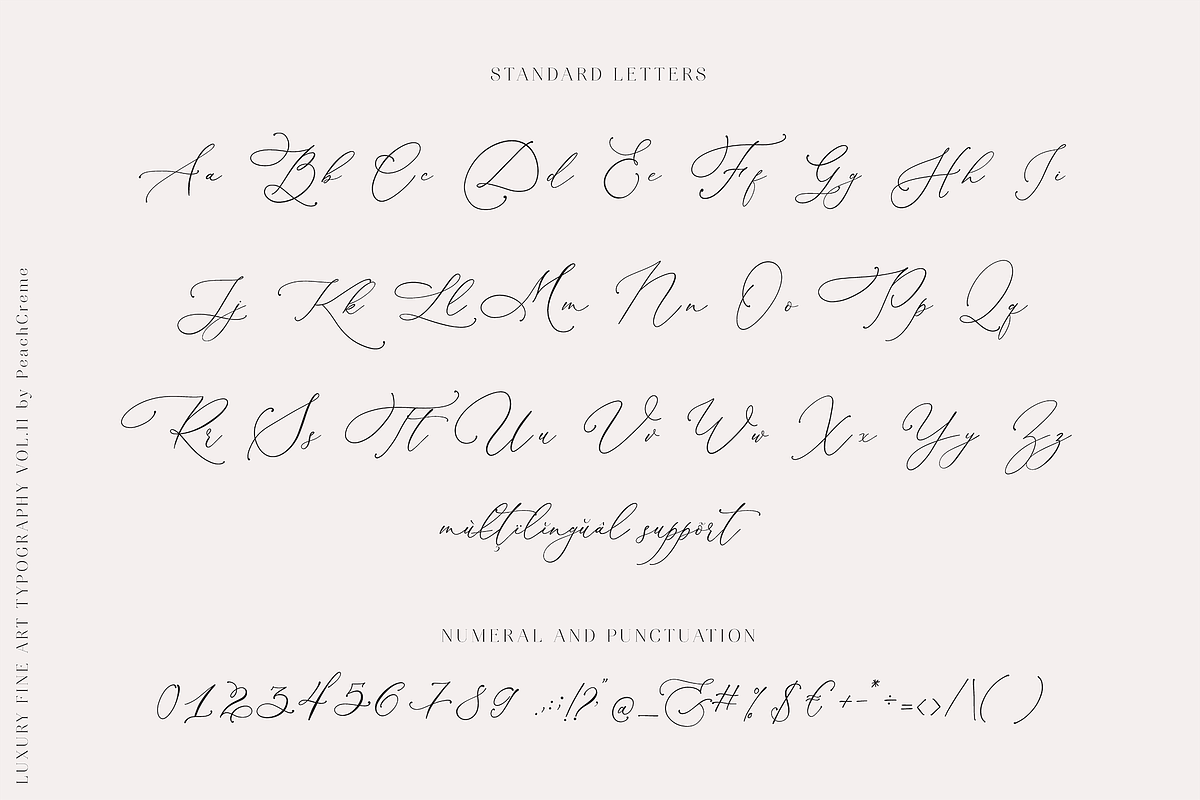 STANDARD LETTERS
Aa Bb Cc Dd Ee Ff Gg Hh Ii
Jj Kk Ll Mm Nn Oo Pp Qq
Rr Ss Tt Uu Vv Ww Xx Yy Zz
mùlţilĭngŭâl suppôrt
NUMERAL AND PUNCTUATION
0 1 2 3 4 5 6 7 8 9 . , : ; ! ? " ' @ _ & # % $ € + - * ÷ = < > / \ ( )
LUXURY FINE ART TYPOGRAPHY VOL.11 by PeachCreme